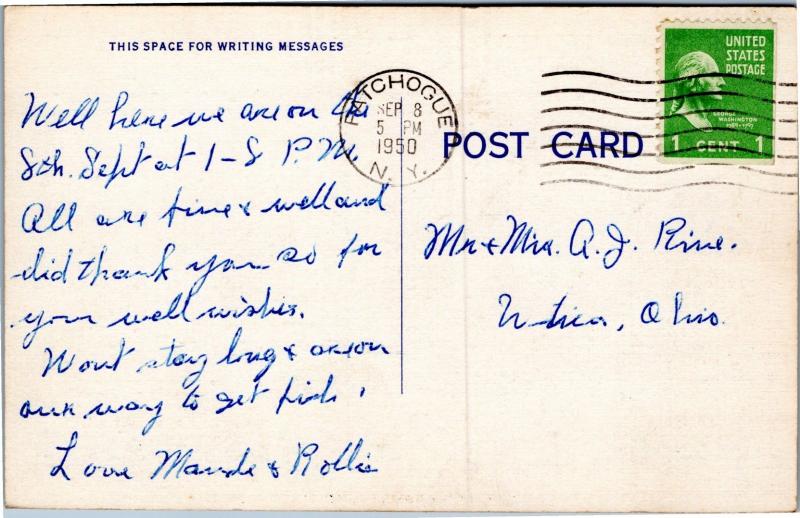 THIS SPACE FOR WRITING MESSAGES
Well here we are on the
8th. Sept at 1-S P.M.
All are fine & well and
did thank you so for
your well wishes.
Wont stay long & are on
our way to get fish.
Love Maude & Rollie
PATCHOGUE
SEP 8
5 PM
1950
N. Y.
POST CARD
UNITED
STATES
POSTAGE
GEORGE
WASHINGTON
1789-1797
1 CENT 1
Mr & Mrs. A. J. Rine.
Utica, Ohio.